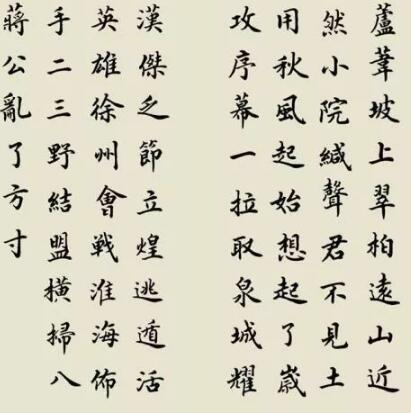 蘆葦坡上翠柏遠山近
然小院緘聲君不見土
用秋風起始想起了崴
攻序幕一拉取泉城耀
漢傑乏節立煌逃遁活
英雄徐州會戰淮海佈
手二三野結盟橫掃八
蔣公亂了方寸